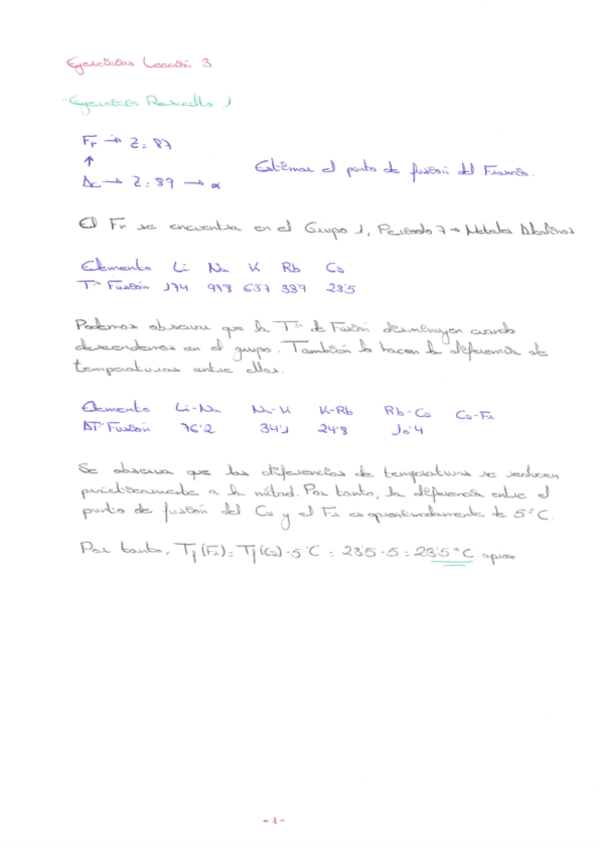 Ejercicios Lección 3
Ejercicio Resuelto 1
Fr → Z: 87
↑
Ac → Z: 89 → α
Estimar el punto de fusión del Francio.
El Fr se encuentra en el Grupo 1, Periodo 7 → Metales Alcalinos
Elemento Li Na K Rb Cs
Tª Fusión 174 97'8 63'7 38'9 28'5
Podemos observar que la Tª de Fusión disminuyen cuando
descendemos en el grupo. También lo hacen la diferencia de
temperaturas entre ellos.
Elemento Li-Na Na-K K-Rb Rb-Cs Cs-Fr
ΔTª Fusión 76'2 34'1 24'8 10'4
Se observa que las diferencias de temperaturas se reducen
prácticamente a la mitad. Por tanto, la diferencia entre el
punto de fusión del Cs y el Fr es aproximadamente de 5°C.
Por tanto, Tf (Fr) = Tf (Cs) - 5°C = 28'5 - 5 = 23'5 °C aprox
- 1 -